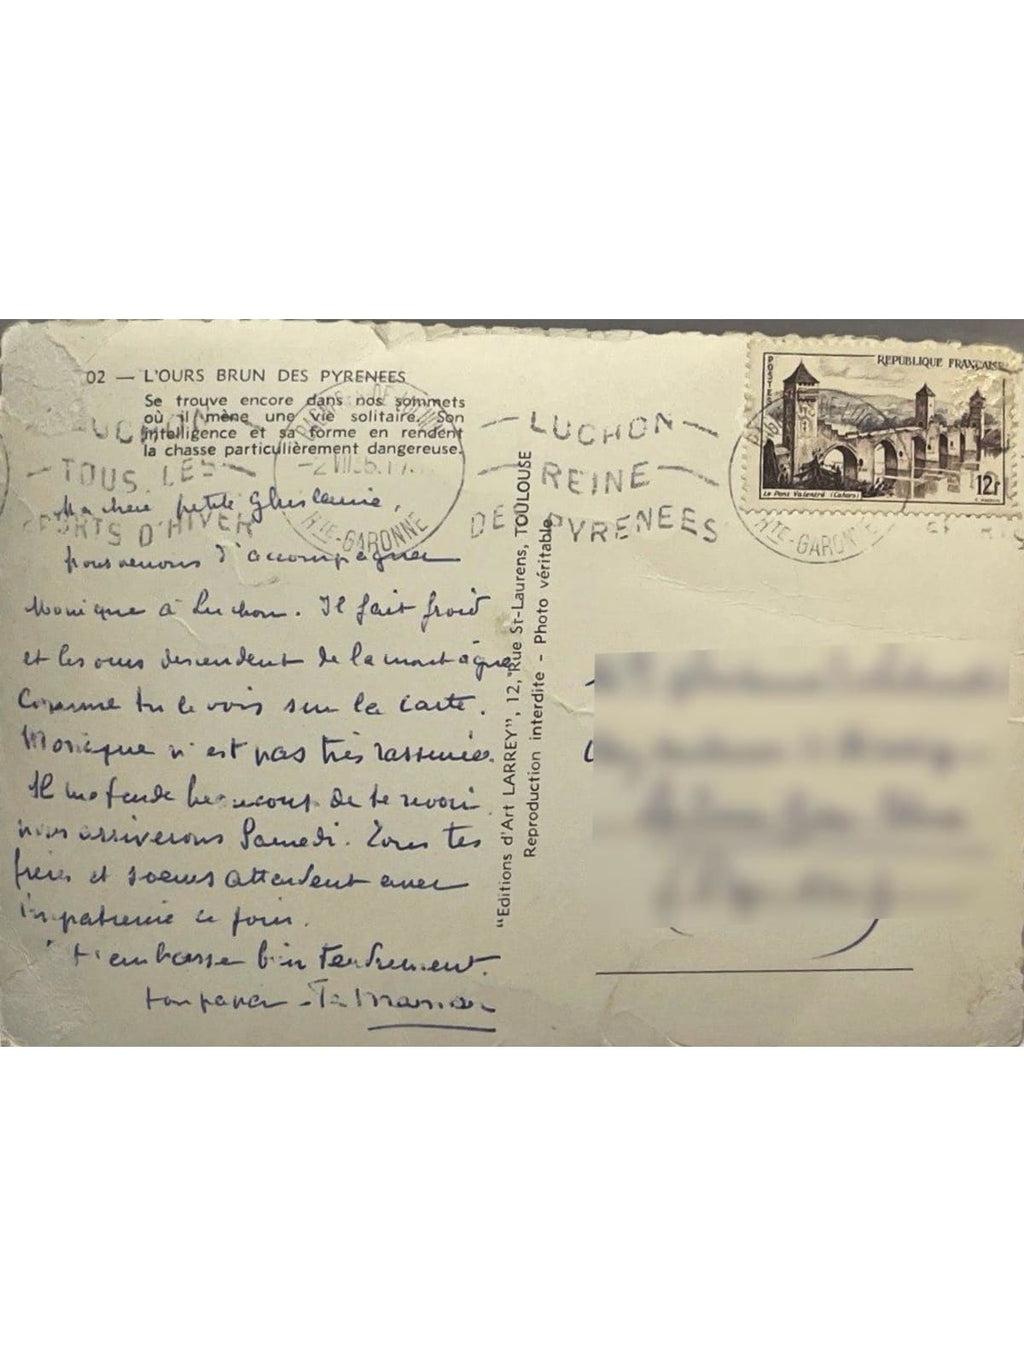 02 — L'OURS BRUN DES PYRENEES
Se trouve encore dans nos sommets
où il mène une vie solitaire. Son
intelligence et sa forme en rendent
la chasse particulièrement dangereuse.
LUCHON
TOUS LES
SPORTS D'HIVER
HTE-GARONNE
LUCHON
REINE
DES PYRENEES
REPUBLIQUE FRANCAISE
POSTES
Le Pont Valentré (Cahors)
12F
HTE-GARONNE
Ma chère petite Ghislaine,
nous venons d'accompagner
Monique à Luchon. Il fait froid
et les ours descendent de la montagne
comme tu le vois sur la carte.
Monique n'est pas très rassurée.
Il me tarde beaucoup de te revoir
nous arriverons Samedi. Tous tes
frères et soeurs attendent avec
impatience ce jour.
t'embrasse bien tendrement.
ton papa - Ta Maman
"Editions d'Art LARREY", 12, Rue St-Laurens, TOULOUSE
Reproduction interdite - Photo véritable